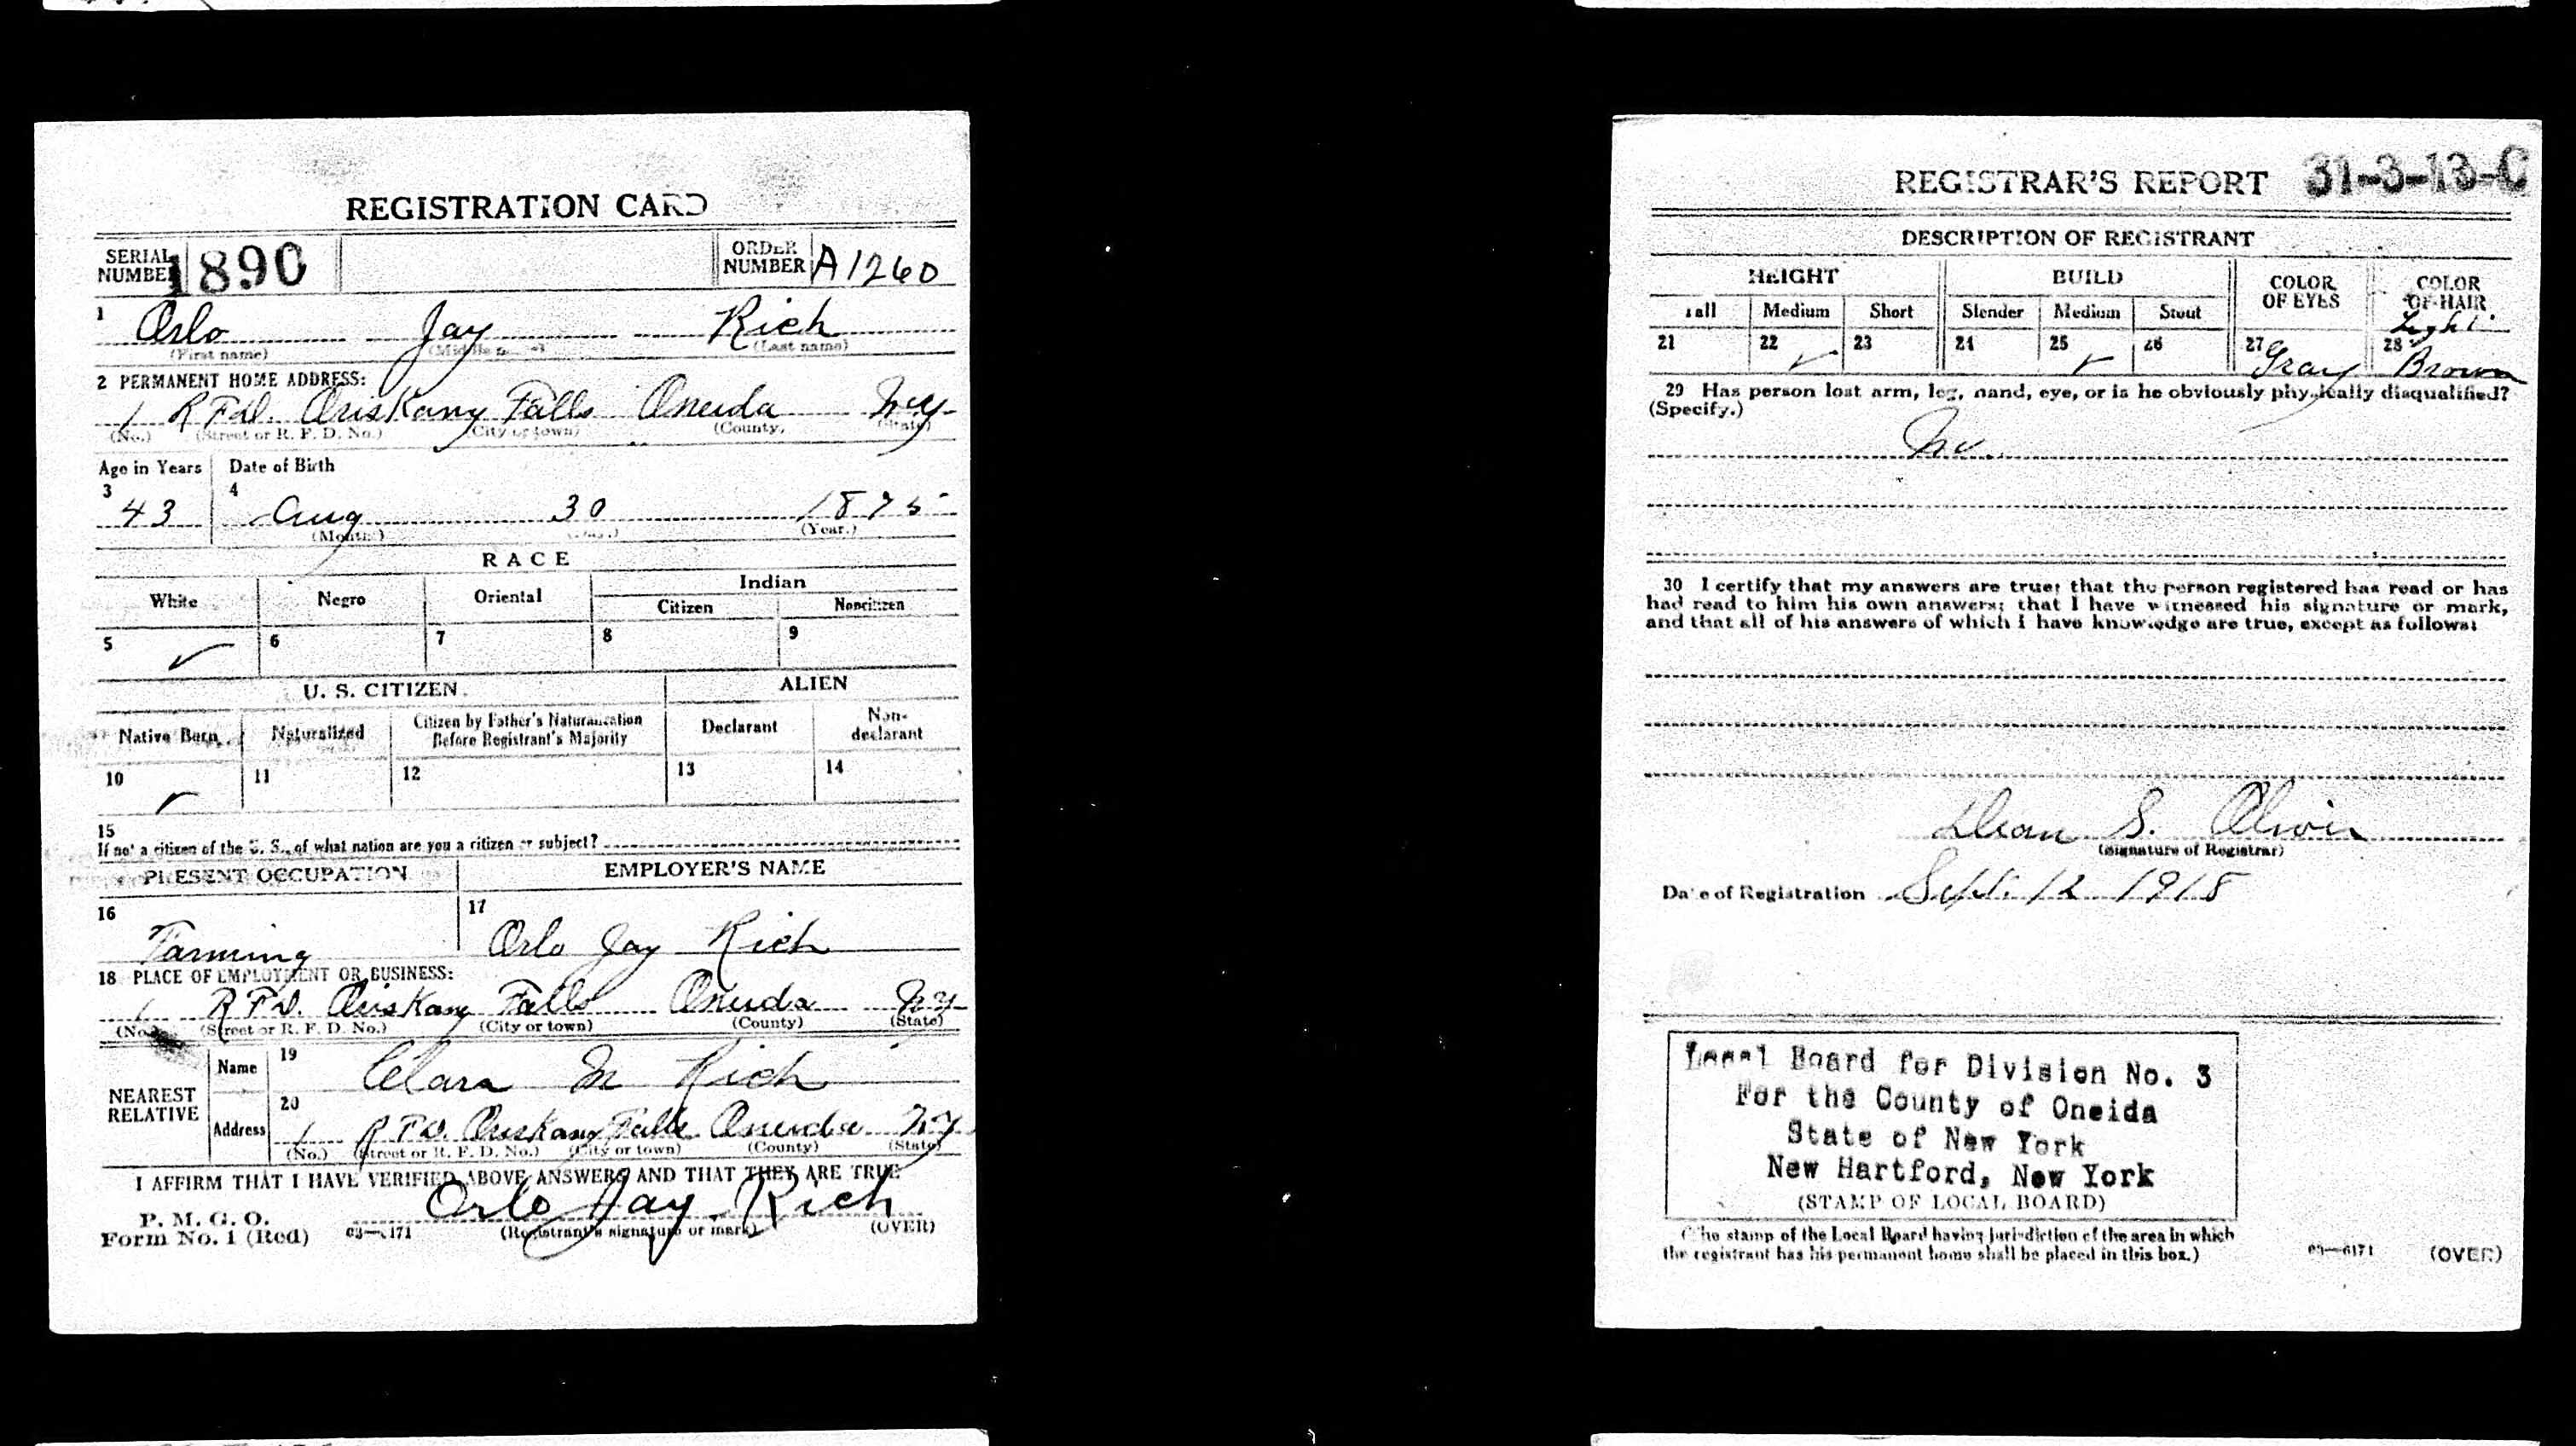 REGISTRATION CARD
SERIAL NUMBER 1890 ORDER NUMBER A1260
1 Orlo Jay Rich
(First name) (Last name)
2 PERMANENT HOME ADDRESS:
1 R F D. Oriskany Falls Oneida N Y
(No.) (Street or R. F. D. No.) (City or town) (County) (State)
Age in Years Date of Birth
3 43 4 Aug 30 1875
(Month) (Year.)
RACE
White Negro Oriental Indian
Citizen Noncitizen
5 ✓ 6 7 8 9
U. S. CITIZEN ALIEN
Native Born Naturalized Citizen by Father's Naturalization Before Registrant's Majority Declarant Non-declarant
10 ✓ 11 12 13 14
15
If not a citizen of the U. S., of what nation are you a citizen or subject?
PRESENT OCCUPATION EMPLOYER'S NAME
16 Farming 17 Orlo Jay Rich
18 PLACE OF EMPLOYMENT OR BUSINESS:
1 R F D. Oriskany Falls Oneida N Y
(No.) (Street or R. F. D. No.) (City or town) (County) (State)
NEAREST RELATIVE Name 19 Clara M Rich
Address 20 1 R F D. Oriskany Falls Oneida N Y
(No.) (Street or R. F. D. No.) (City or town) (County) (State)
I AFFIRM THAT I HAVE VERIFIED ABOVE ANSWERS AND THAT THEY ARE TRUE
Orlo Jay Rich
P. M. G. O.
Form No. 1 (Red) 03—6171 (Registrant's signature or mark) (OVER)
REGISTRAR'S REPORT 31-3-13-C
DESCRIPTION OF REGISTRANT
HEIGHT BUILD COLOR OF EYES COLOR OF HAIR
Tall Medium Short Slender Medium Stout
21 22 ✓ 23 24 25 ✓ 26 27 Gray 28 Light Brown
29 Has person lost arm, leg, hand, eye, or is he obviously physically disqualified?
(Specify.)
No.
30 I certify that my answers are true; that the person registered has read or has
had read to him his own answers; that I have witnessed his signature or mark,
and that all of his answers of which I have knowledge are true, except as follows:
S.
(Signature of Registrar)
Date of Registration Sept. 12 1918
Local Board for Division No. 3
For the County of Oneida
State of New York
New Hartford, New York
(STAMP OF LOCAL BOARD)
(The stamp of the Local Board having jurisdiction of the area in which
the registrant has his permanent home shall be placed in this box.)
03—6171 (OVER)